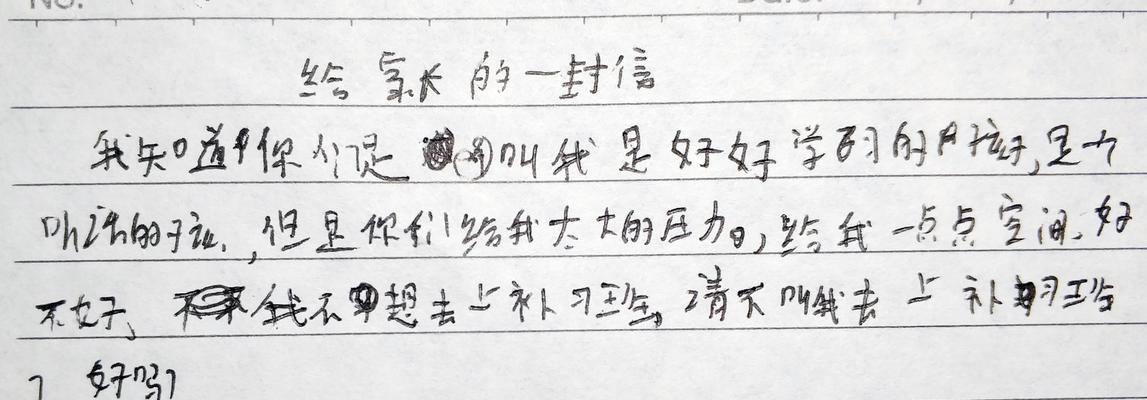 No.
给家长的一封信
我知道你们是叫我是好好学习的孩子,是个
听话的孩,但是你们给我太大的压力,给我一点点空间,好
不好、我不想去上补习班,请不叫我去上补习班
了 好吗